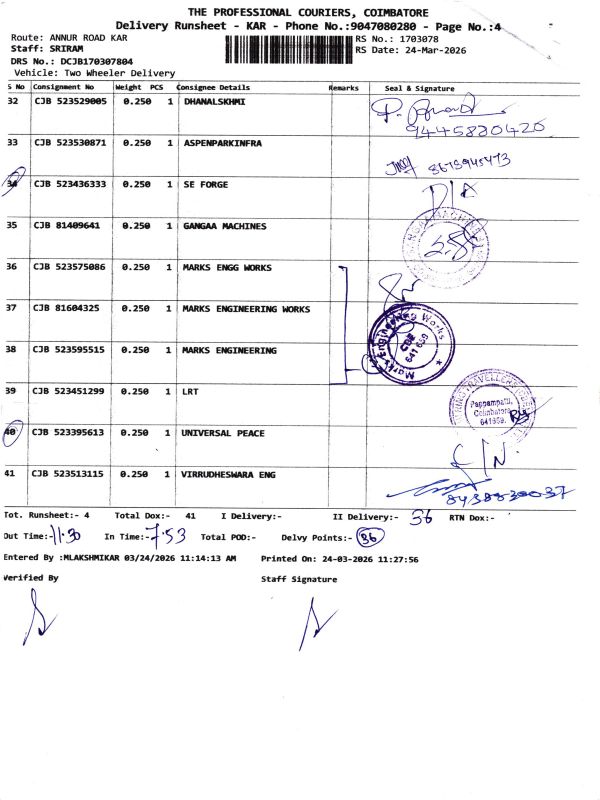 THE PROFESSIONAL COURIERS, COIMBATORE
Delivery Runsheet - KAR - Phone No.:9047080280 - Page No.:4
Route: ANNUR ROAD KAR
RS No.: 1703078
Staff: SRIRAM
RS Date: 24-Mar-2026
DRS No.: DCJB170307804
Vehicle: Two Wheeler Delivery
S No Consignment No Weight PCS Consignee Details Remarks Seal & Signature
32 CJB 523529005 0.250 1 DHANALSKHMI
9445880420
33 CJB 523530871 0.250 1 ASPENPARKINFRA
8675945473
34 CJB 523436333 0.250 1 SE FORGE
D/A
35 CJB 81409641 0.250 1 GANGAA MACHINES
36 CJB 523575086 0.250 1 MARKS ENGG WORKS
37 CJB 81604325 0.250 1 MARKS ENGINEERING WORKS
Marks Engineering Works
CBE
641 659
38 CJB 523595515 0.250 1 MARKS ENGINEERING
39 CJB 523451299 0.250 1 LRT
Pappampatti,
Coimbatore
40 CJB 523395613 0.250 1 UNIVERSAL PEACE
C/N
41 CJB 523513115 0.250 1 VIRRUDHESWARA ENG
Tot. Runsheet:- 4 Total Dox:- 41 I Delivery:- II Delivery:- 36 RTN Dox:-
Out Time:- 11.30 In Time:- 7.53 Total POD:- Delvy Points:- 36
Entered By :MLAKSHMIKAR 03/24/2026 11:14:13 AM Printed On: 24-03-2026 11:27:56
Verified By Staff Signature